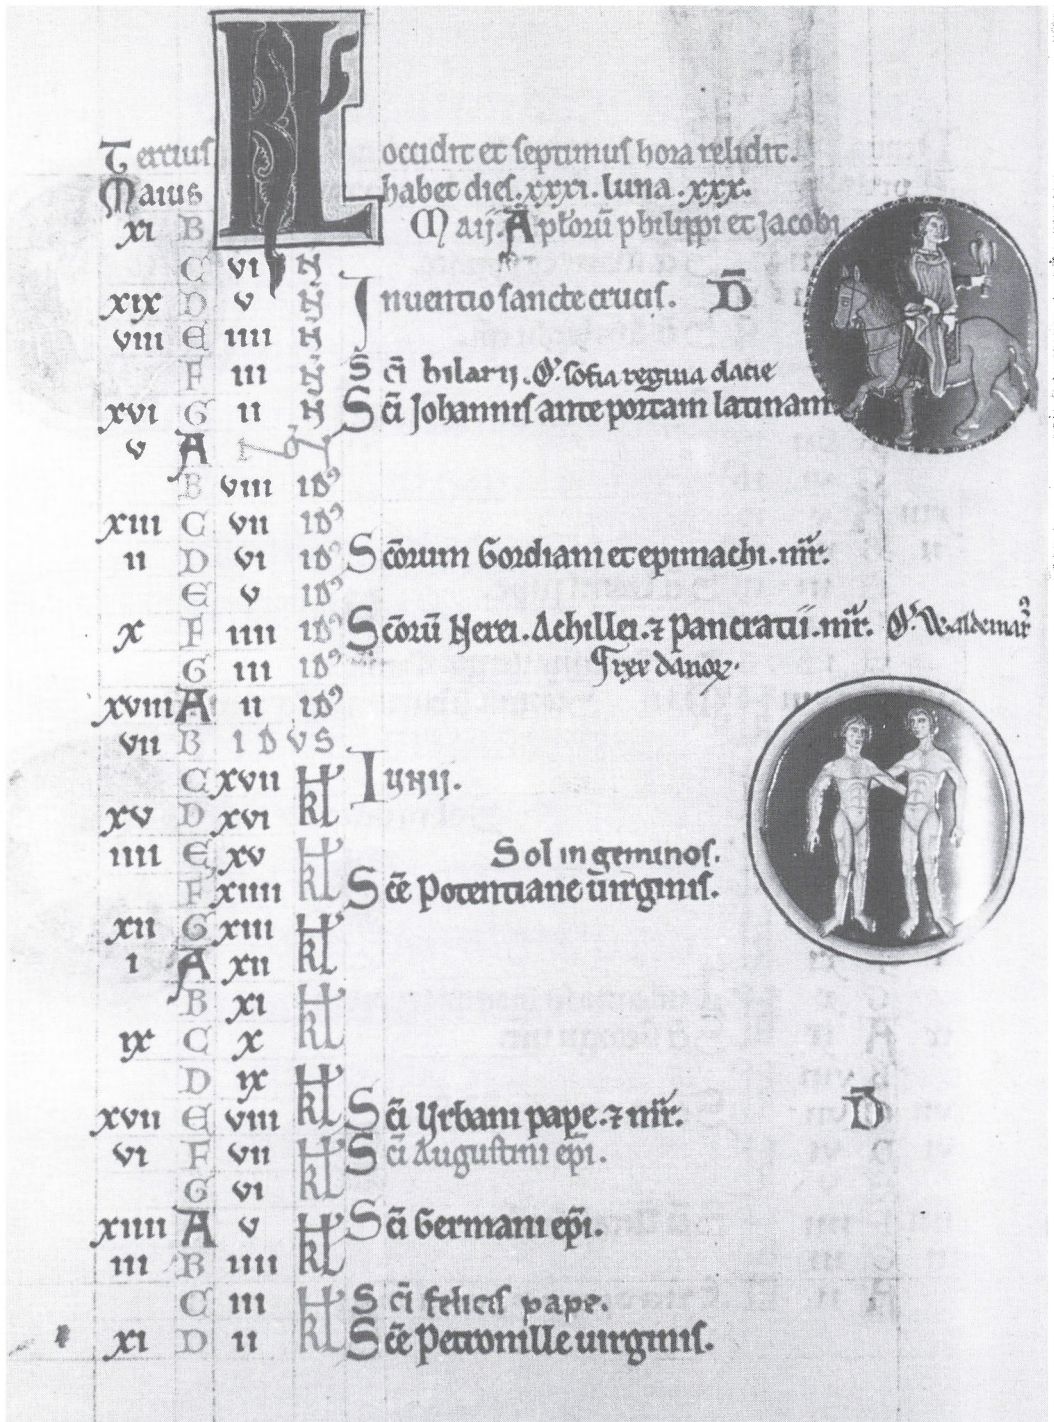 KL
Tercius occidit et septimus hora relidit.
Maius habet dies .xxxi. luna .xxx.
xi B Maij. Apl̄orū philippi et Jacobi
C vi N
xix D v N Inuentio sancte crucis. D̄
viii E iiii N
F iii N Sc̄i hilarij. O. sofia regina dacie
xvi G ii N Sc̄i Johannis ante portam latinam
v A
B viii ID9
xiii C vii ID9
ii D vi ID9 Sc̄orum Gordiani et epimachi. mr̄.
E v ID9
x F iiii ID9 Sc̄orū Nerei. Achillei. ⁊ pancratii. mr̄. O. Waldemar9
G iii ID9 rex danoꝝ.
xviii A ii ID9
vii B IDVS
C xvii kL Iunij.
xv D xvi kL
iiii E xv kL Sol in geminos.
F xiiii kL Sc̄e Potentiane uirginis.
xii G xiii kL
i A xii kL
B xi kL
ix C x kL
D ix kL
xvii E viii kL Sc̄i Vrbani pape. ⁊ mr̄. D̄
vi F vii kL Sc̄i Augustini ep̄i.
G vi kL
xiiii A v kL Sc̄i Germani ep̄i.
iii B iiii kL
C iii kL Sc̄i felicis pape.
xi D ii kL Sc̄e Petronille uirginis.